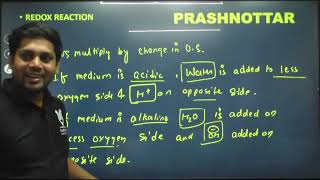 • REDOX REACTION
PRASHNOTTAR
multiply by change in O.S.
If medium is acidic, Water is added to less
oxygen side & H⁺ on opposite side.
If medium is alkaline H₂O is added on
excess oxygen side and OH⁻ added on
opposite side.